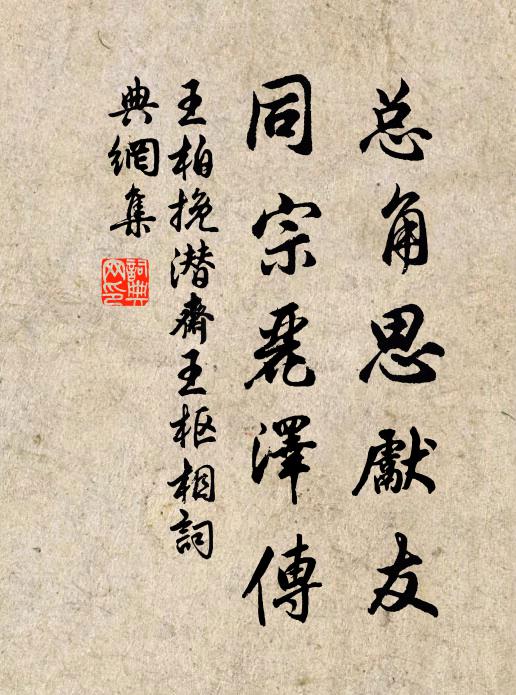 总角思献友
同宗丽泽傳
王柏挽潜齋王枢相詞
典網集
詞典网印